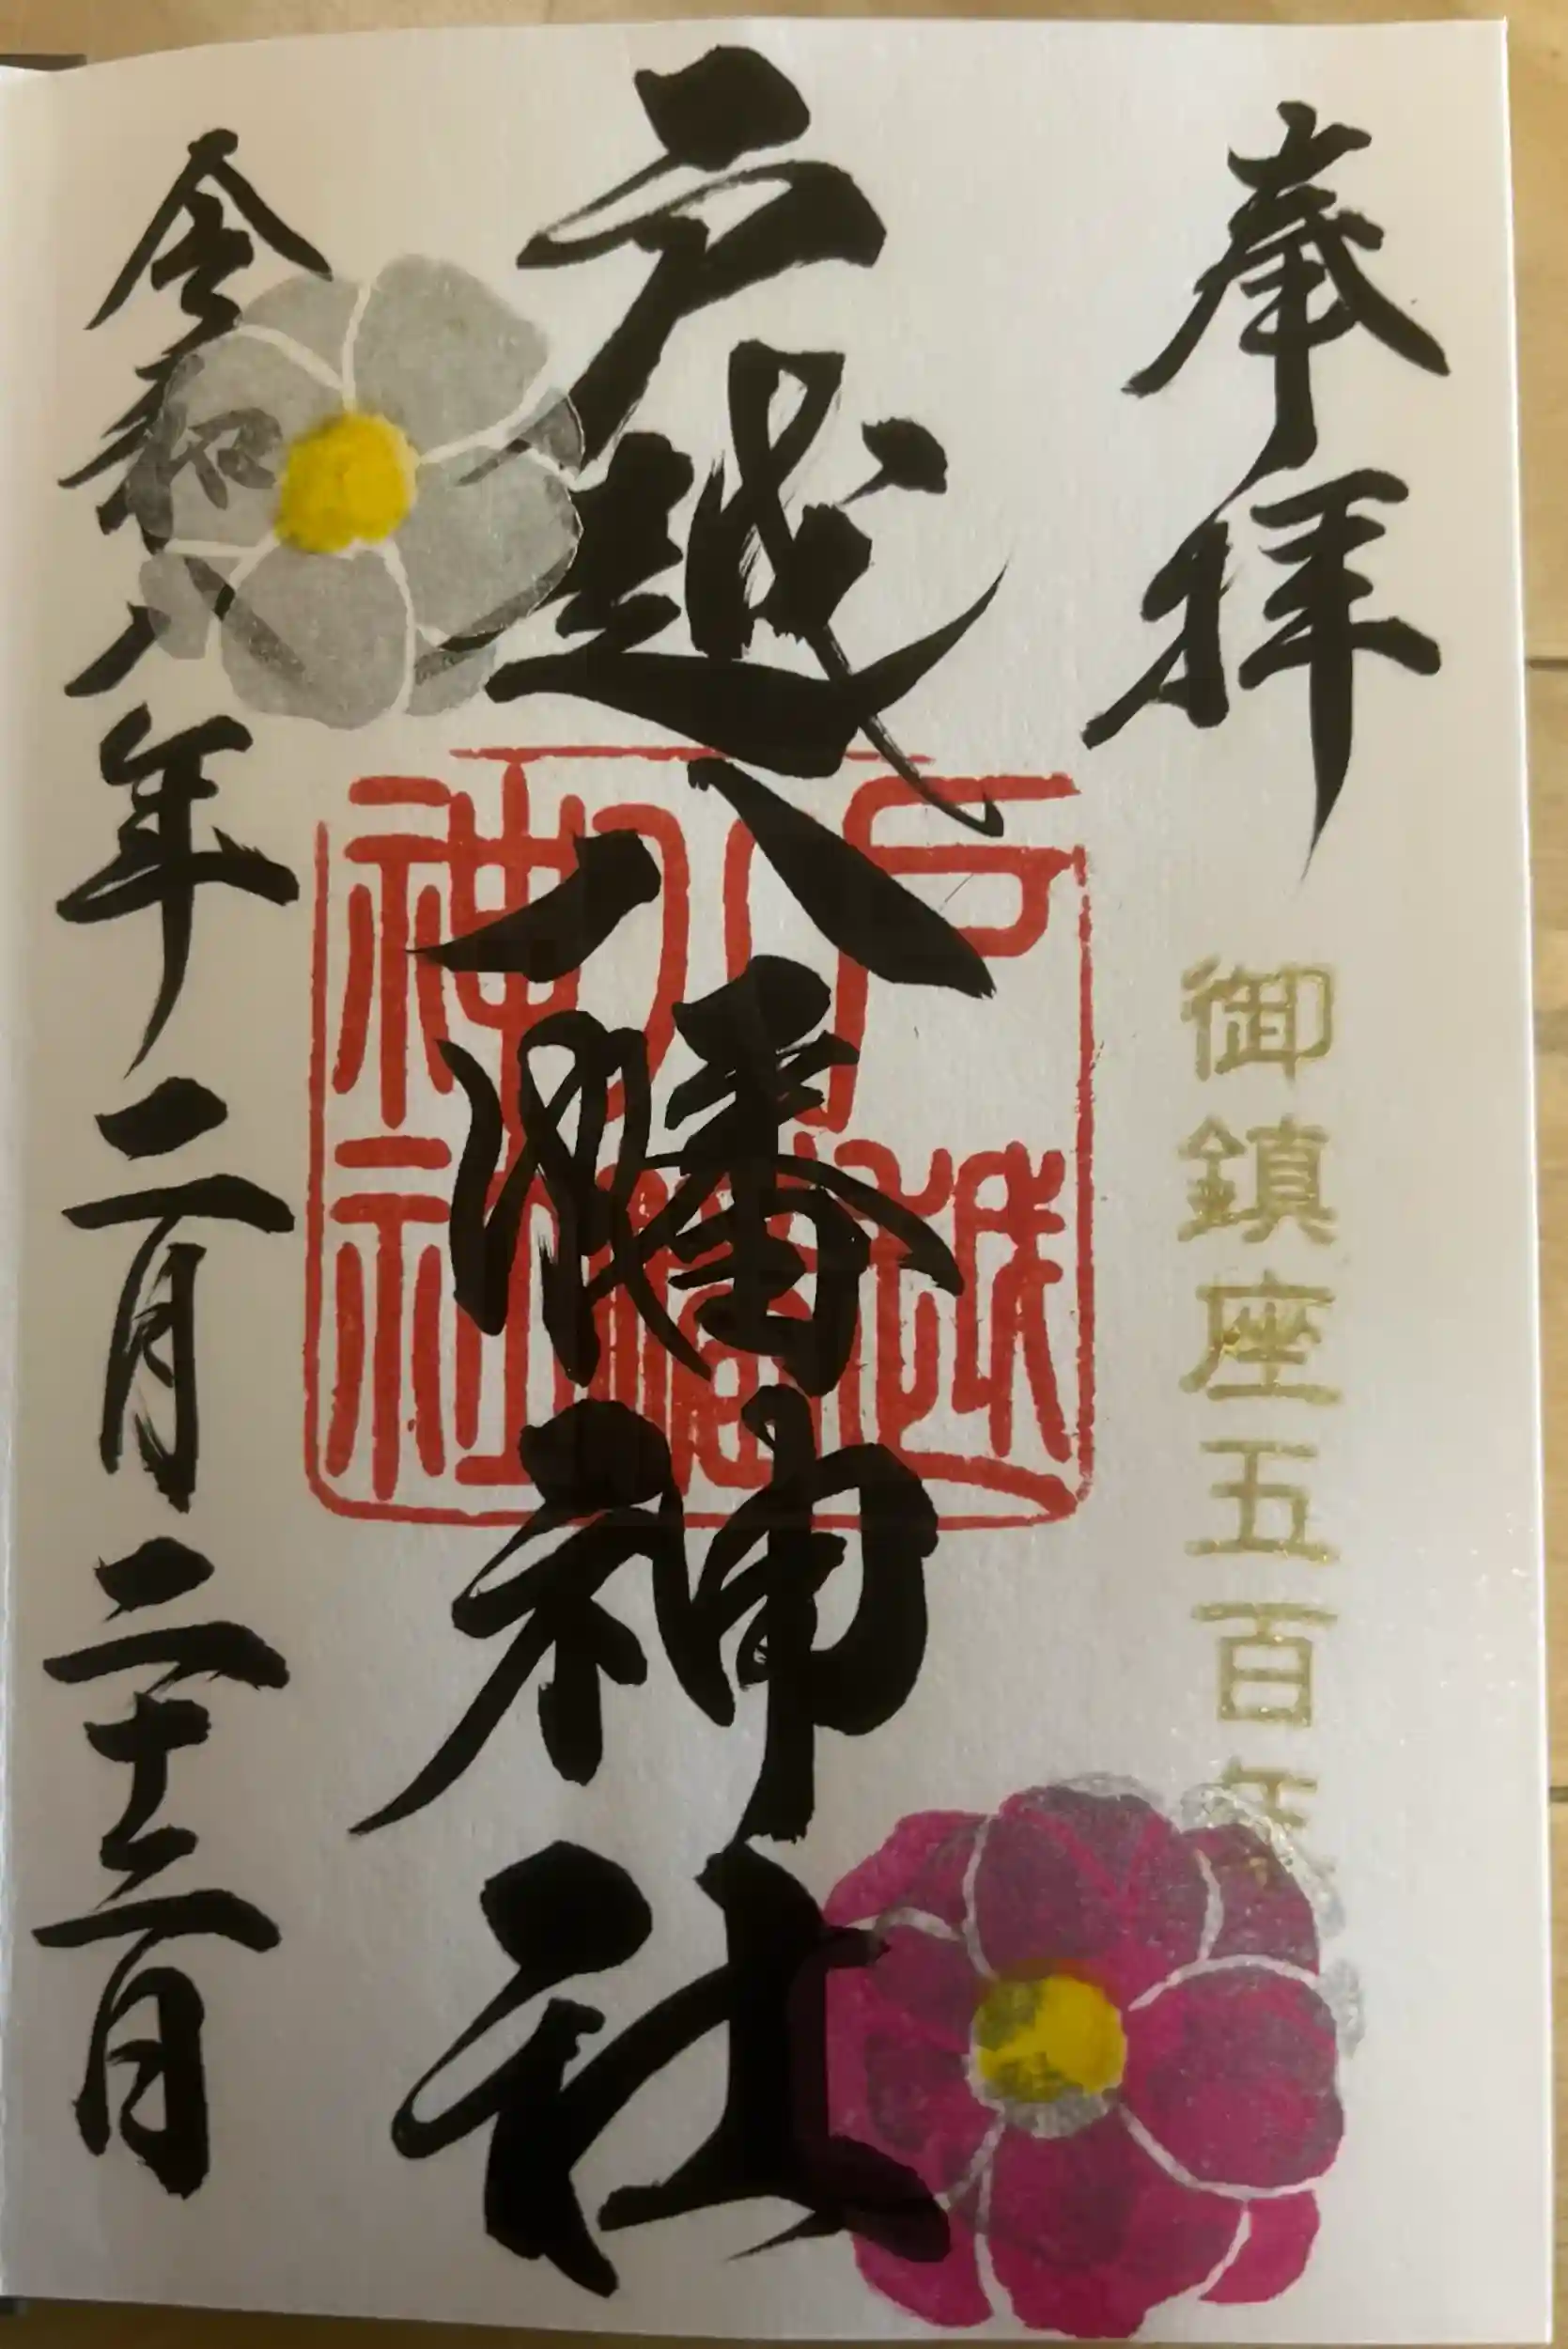 奉拝
御鎮座五百年
戸越八幡神社
戸越八幡神社
令和八年二月二十二日